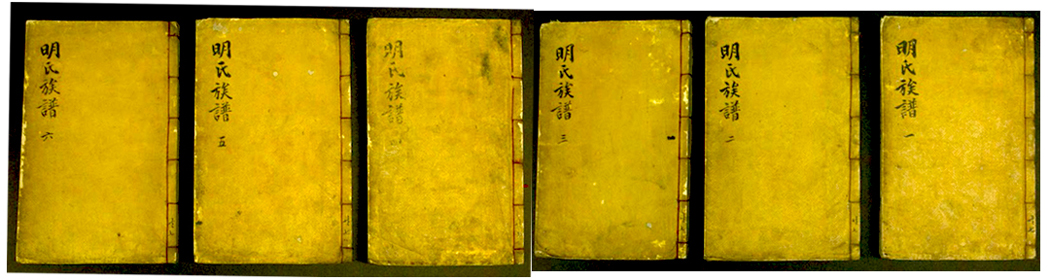 明氏族譜 一
明氏族譜 二
明氏族譜 三
明氏族譜
明氏族譜 五
明氏族譜 六